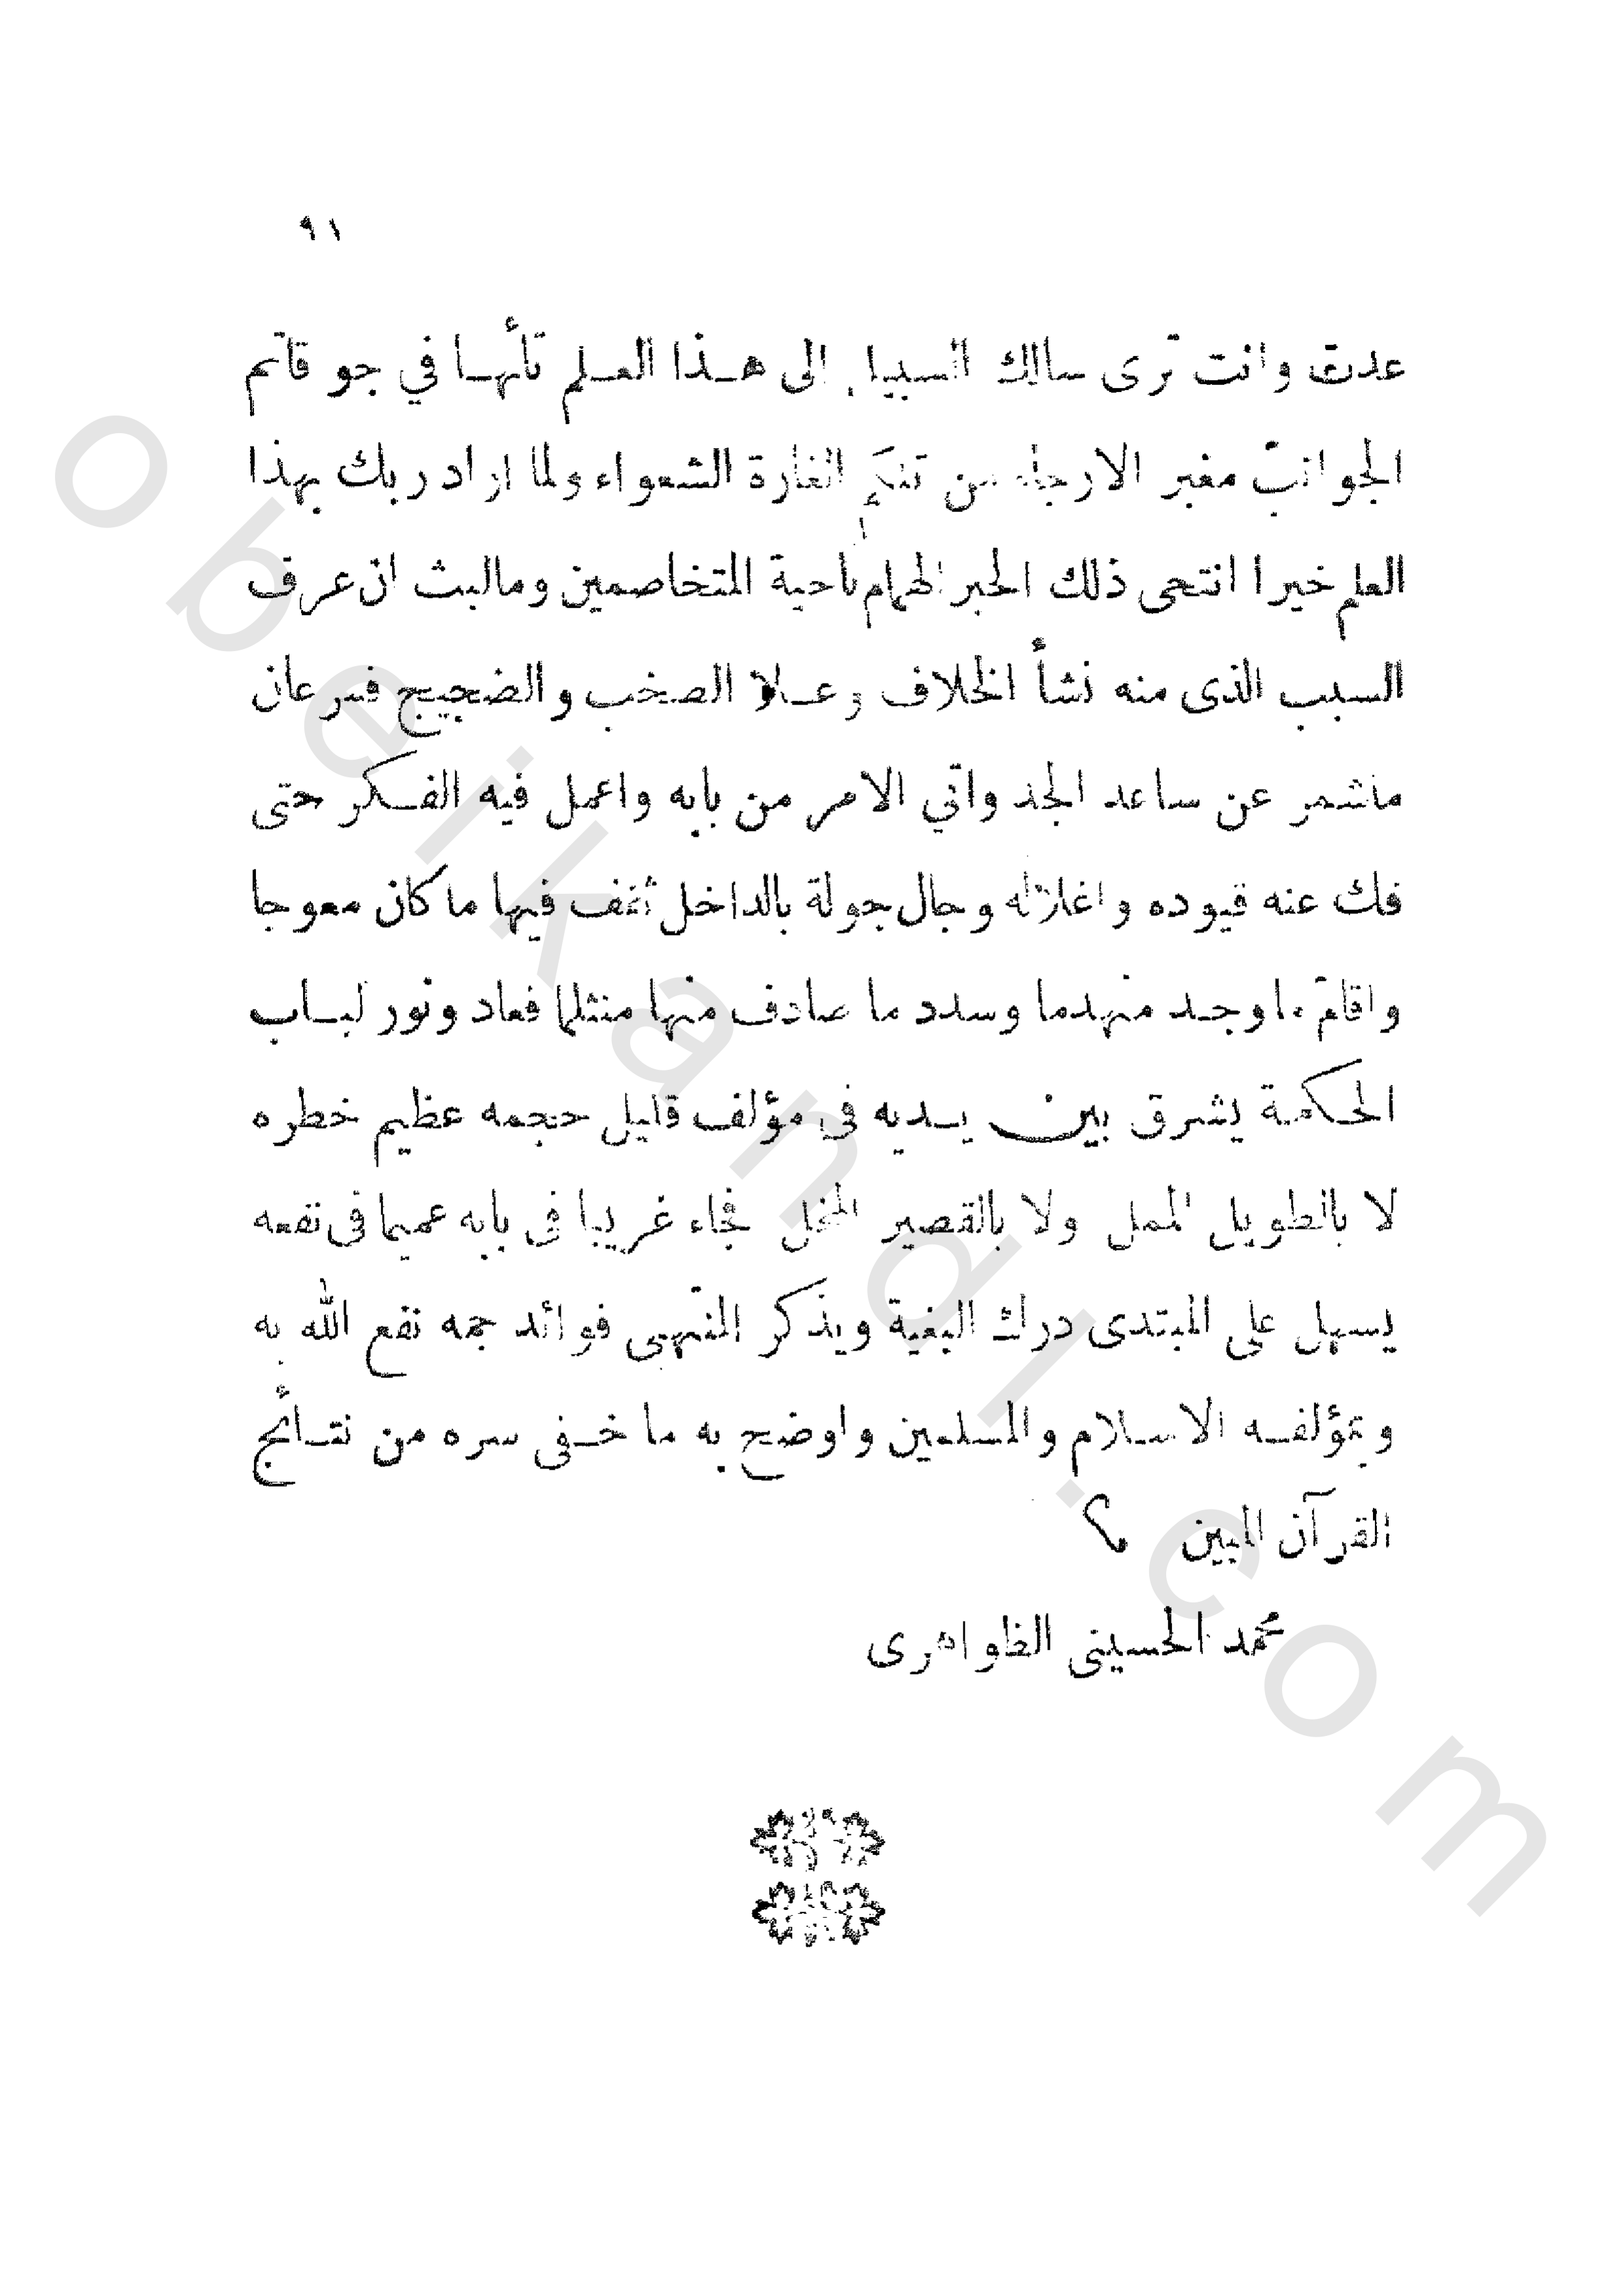 ٩١
عدت وانت ترى سالك السبيل إلى هذا العلم تأئها في جو قاتم
الجوانب مغبر الارجاء من تلكم الغارة الشعواء ولما اراد ربك بهذا
العلم خيرا انتحى ذلك الحبر الهمام ناحية المتخاصمين ومالبث ان عرف
السبب الذى منه نشأ الخلاف وعلا الصخب والضجيج فسرعان
ماشمر عن ساعد الجد واتي الامر من بابه واعمل فيه الفكر حتى
فك عنه قيوده واغلاله وجال جولة بالداخل ثقف فيها ما كان معوجا
واقام ماوجد منهدما وسدد ما صادف منها منثلما فعاد ونور لباب
الحكمة يشرق بين يديه فى مؤلف قليل حجمه عظيم خطره
لا بالطويل الممل ولا بالقصير المخل فجاء غريبا فى بابه عميما فى نفعه
يسهل على المبتدى درك البغية ويذكر المنتهى فوائد جمه نفع الله به
وبمؤلفه الاسلام والمسلمين واوضح به ما خفى سره من نتائج
القرآن المبين
محمد الحسينى الظواهرى
obeikandl.com